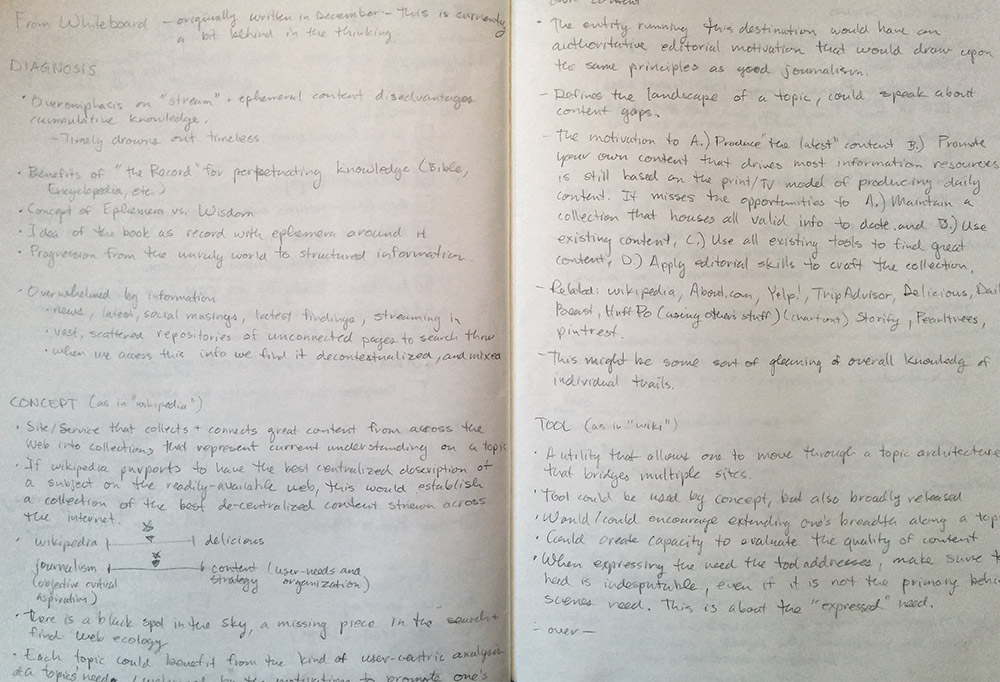 From Whiteboard — originally written in December — This is currently
a bit behind in the thinking
DIAGNOSIS
• Overemphasis on "stream" + ephemeral content disadvantages
cummulative knowledge.
— Timely drowns out timeless
• Benefits of "the Record" for perpetuating knowledge (Bible,
Encyclopedia, etc.)
• Concept of Ephemera vs. Wisdom
• Idea of the book as record with ephemera around it
• Progression from the unruly world to structured information.
• Overwhelmed by information
• news, latest, social musings, latest findings, streaming in
• vast, scattered repositories of unconnected pages to search thru
• when we access this info we find it decontextualized, and mixed
CONCEPT (as in "wikipedia")
• Site/Service that collects + connects great content from across the
Web into collections that represent current understanding on a topic
• If wikipedia purports to have the best centralized description of
a subject on the readily-available web, this would establish
a collection of the best de-centralized content strewn across
the internet.
• wikipedia delicious
journalism content (user-needs and
(objective critical strategy organization)
aspiration)
• There is a black spot in the sky, a missing piece in the search +
find web ecology
• Each topic could benefit from the kind of user-centric analyses
of a topics needs by the motivation to promote one's
own content
• The entity running this destination would have an
authoritative editorial motivation that would draw upon
the same principles as good journalism.
— Defines the landscape of a topic, could speak about
content gaps.
— The motivation to A.) Produce "the latest" content B.) Promote
your own content that drives most information resources
is still based on the print/TV model of producing daily
content. It misses the opportunities to A.) Maintain a
collection that houses all valid info to date and B.) Use
existing content, C.) Use all existing tools to find great
content, D.) Apply editorial skills to craft the collection.
— Related: wikipedia, About.com, Yelp!, TripAdvisor, Delicious, Dail
Beast, Huff Po (using others stuff) Storify, Pearltrees,
pintrest.
— This might be some sort of gleaning of overall knowledg of
individual trails.
TOOL (as in "wiki")
• A utility that allows one to move through a topic architecture
that bridges multiple sites.
• Tool could be used by concept, but also broadly released
• Would/could encourage extending one's breadth along a topi
• Could create capacity to evaluate the quality of content
• When expressing the need the tool addresses, make sure t
need is indesputable, even if it is not the primary behin
scenes need. This is about the "expressed" need.
— over —